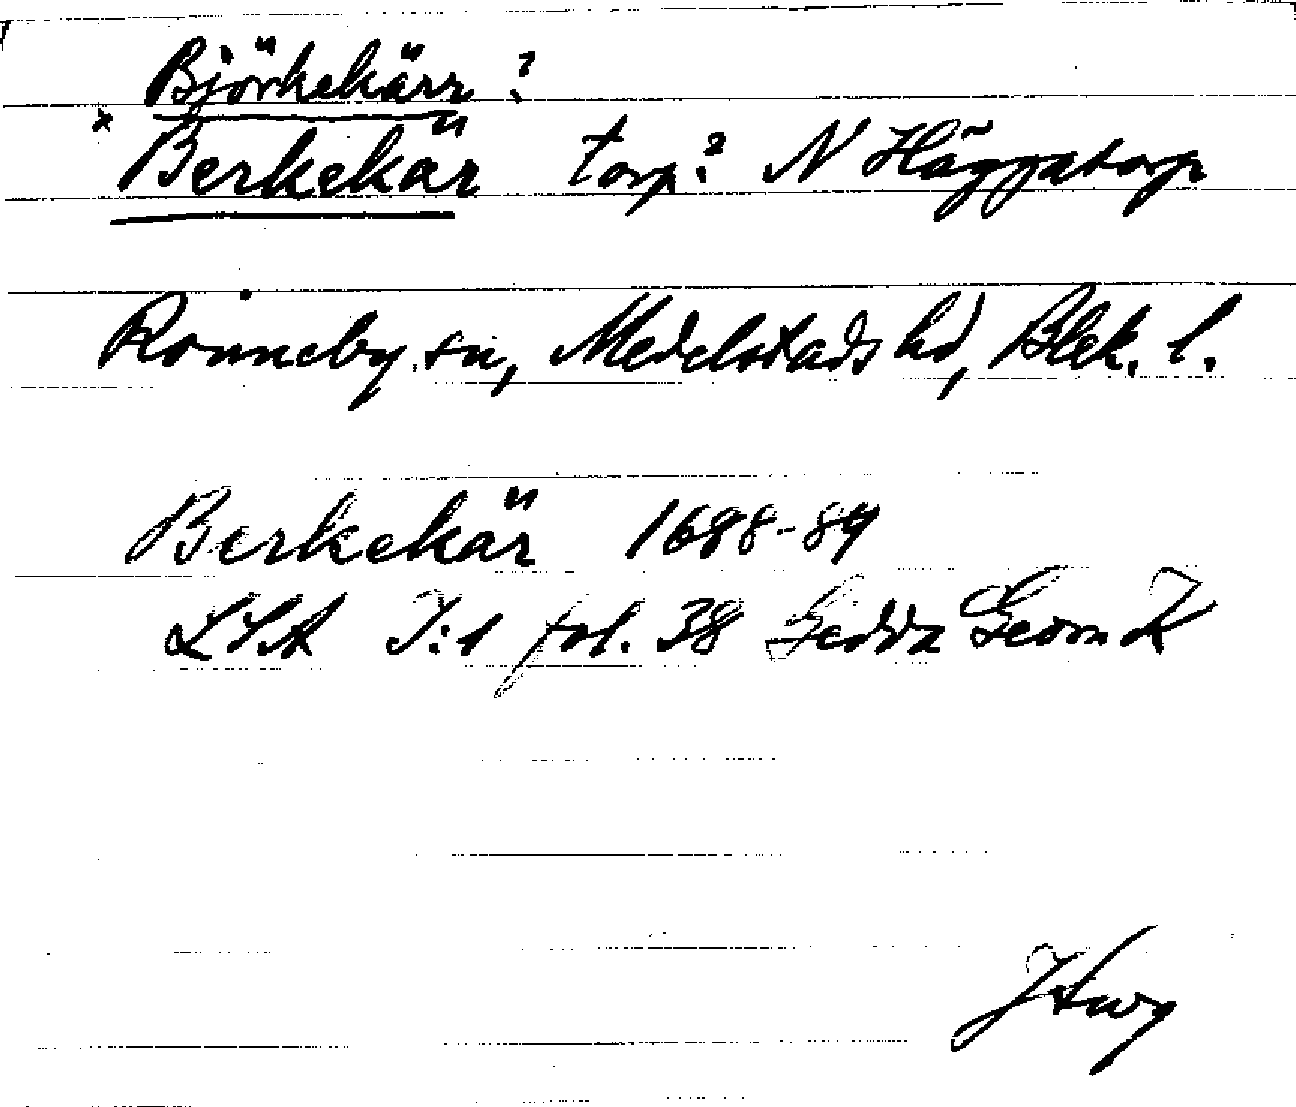 Björkekärr ?
x Berkekär torp? N Häggatorp
Ronneby sn, Medelstads hd, Blek. l.
Berkekär 1688-89
LSA I:1 fol. 38 Gedda Geom K